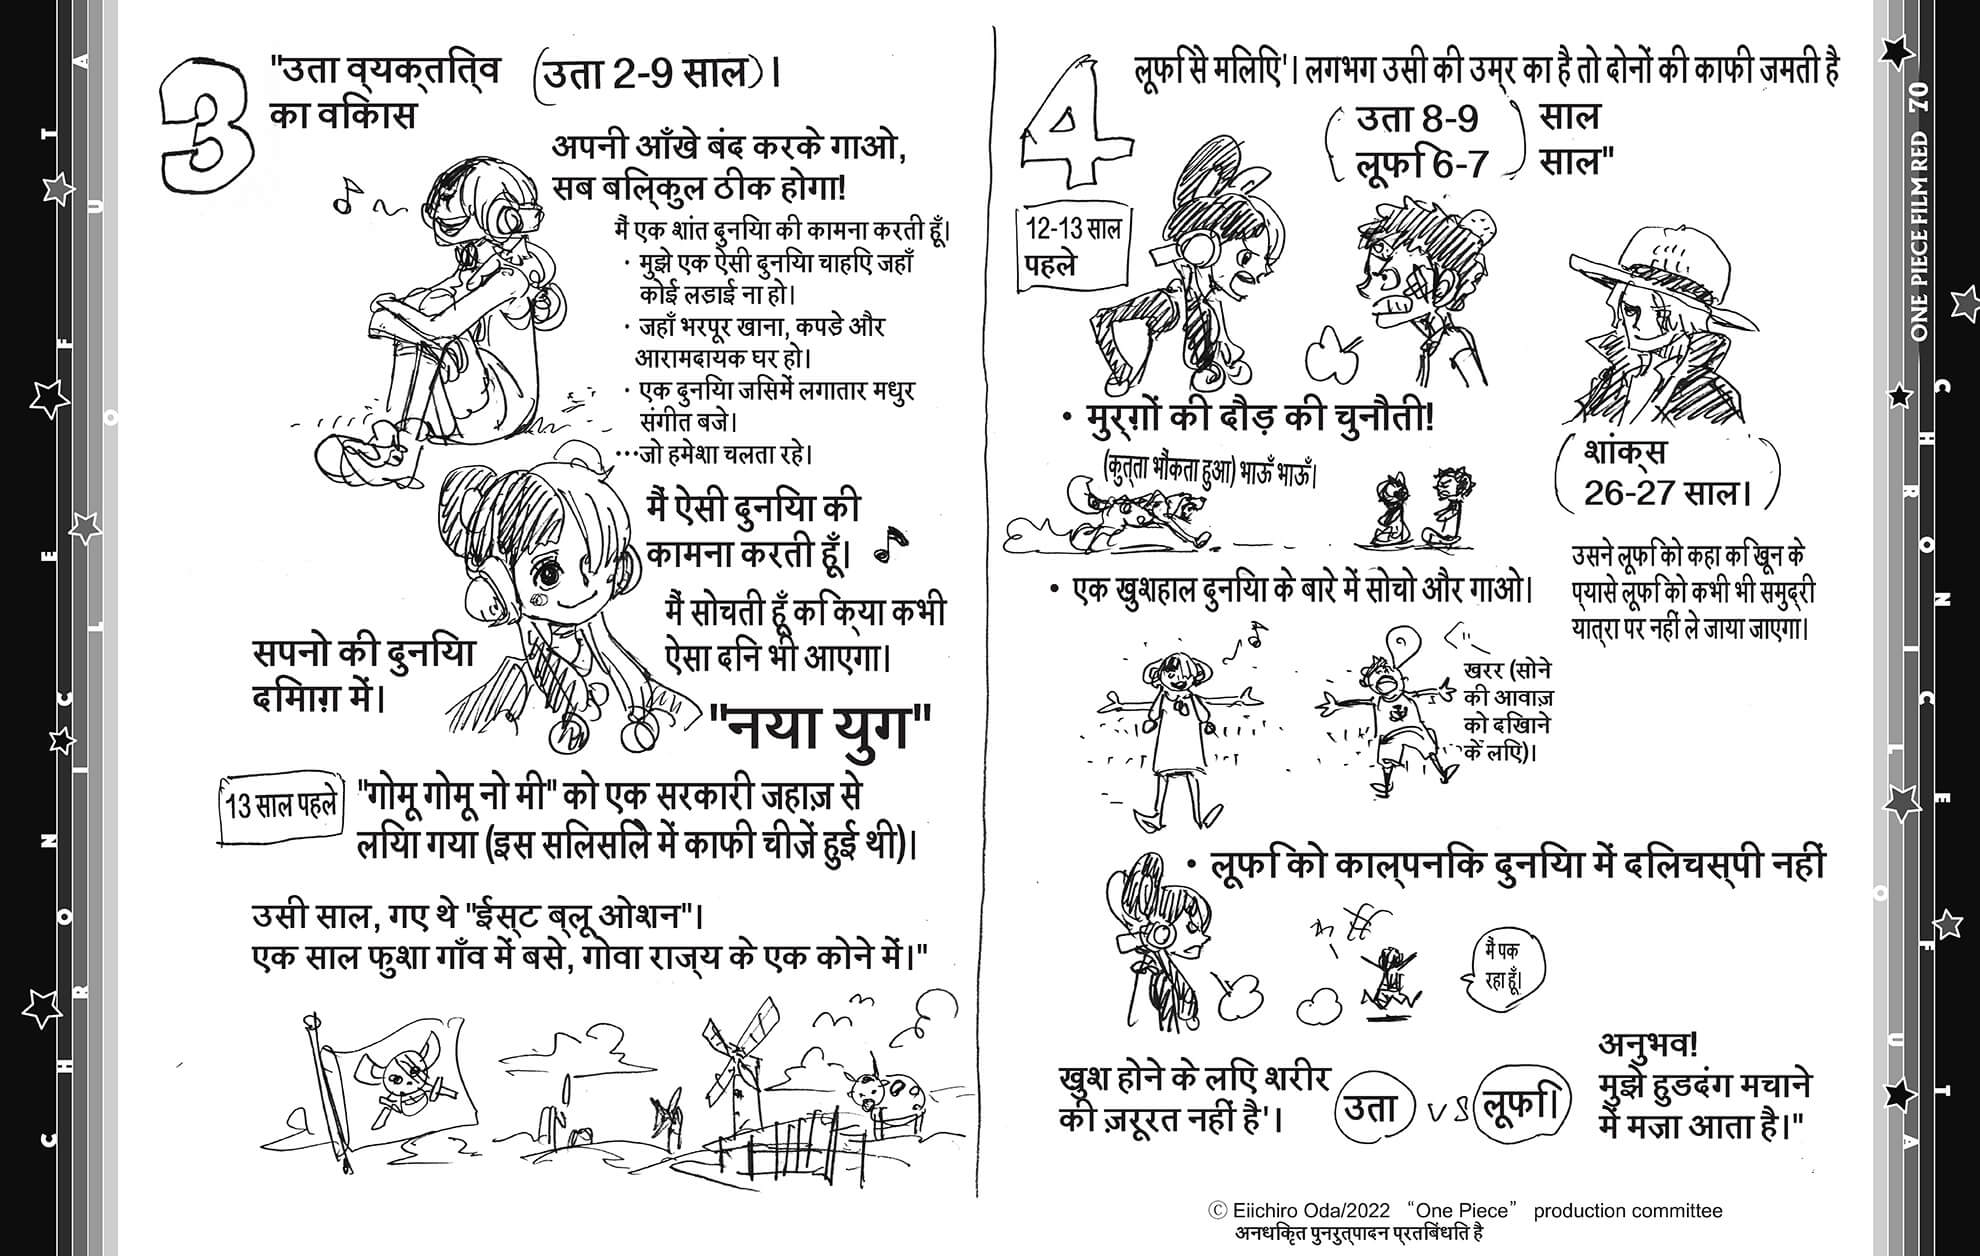 3
"उता व्यक्तित्व (उता 2-9 साल)।
का विकास
अपनी आँखे बंद करके गाओ,
सब बिल्कुल ठीक होगा!
मैं एक शांत दुनिया की कामना करती हूँ।
· मुझे एक ऐसी दुनिया चाहिए जहाँ
कोई लडाई ना हो।
· जहाँ भरपूर खाना, कपडे और
आरामदायक घर हो।
· एक दुनिया जिसमें लगातार मधुर
संगीत बजे।
···जो हमेशा चलता रहे।
मैं ऐसी दुनिया की
कामना करती हूँ।
मैं सोचती हूँ कि क्या कभी
ऐसा दिन भी आएगा।
सपनो की दुनिया
दिमाग़ में।
"नया युग"
13 साल पहले
"गोमू गोमू नो मी" को एक सरकारी जहाज़ से
लिया गया (इस सिलसिले में काफी चीजें हुई थी)।
उसी साल, गए थे "ईस्ट ब्लू ओशन"।
एक साल फुशा गाँव में बसे, गोवा राज्य के एक कोने में।"
4
लूफी से मिलिए'। लगभग उसी की उम्र का है तो दोनों की काफी जमती है
(उता 8-9) साल
(लूफी 6-7) साल"
12-13 साल
पहले
· मुर्ग़ों की दौड़ की चुनौती!
(कुत्ता भौंकता हुआ) भाऊँ भाऊँ।
(शांक्स
26-27 साल।)
उसने लूफी को कहा कि खून के
प्यासे लूफी को कभी भी समुद्री
यात्रा पर नहीं ले जाया जाएगा।
· एक खुशहाल दुनिया के बारे में सोचो और गाओ।
खरर (सोने
की आवाज़
को दिखाने
के लिए)।
· लूफी को काल्पनिक दुनिया में दिलचस्पी नहीं
मैं पक
रहा हूँ।
खुश होने के लिए शरीर
की ज़रूरत नहीं है'।
उता vs लूफी।
अनुभव!
मुझे हुडदंग मचाने
में मज़ा आता है।"
Ⓒ Eiichiro Oda/2022 “One Piece” production committee
अनधिकृत पुनरुत्पादन प्रतिबंधित है
ONE PIECE FILM RED 70
UTA CHRONICLE